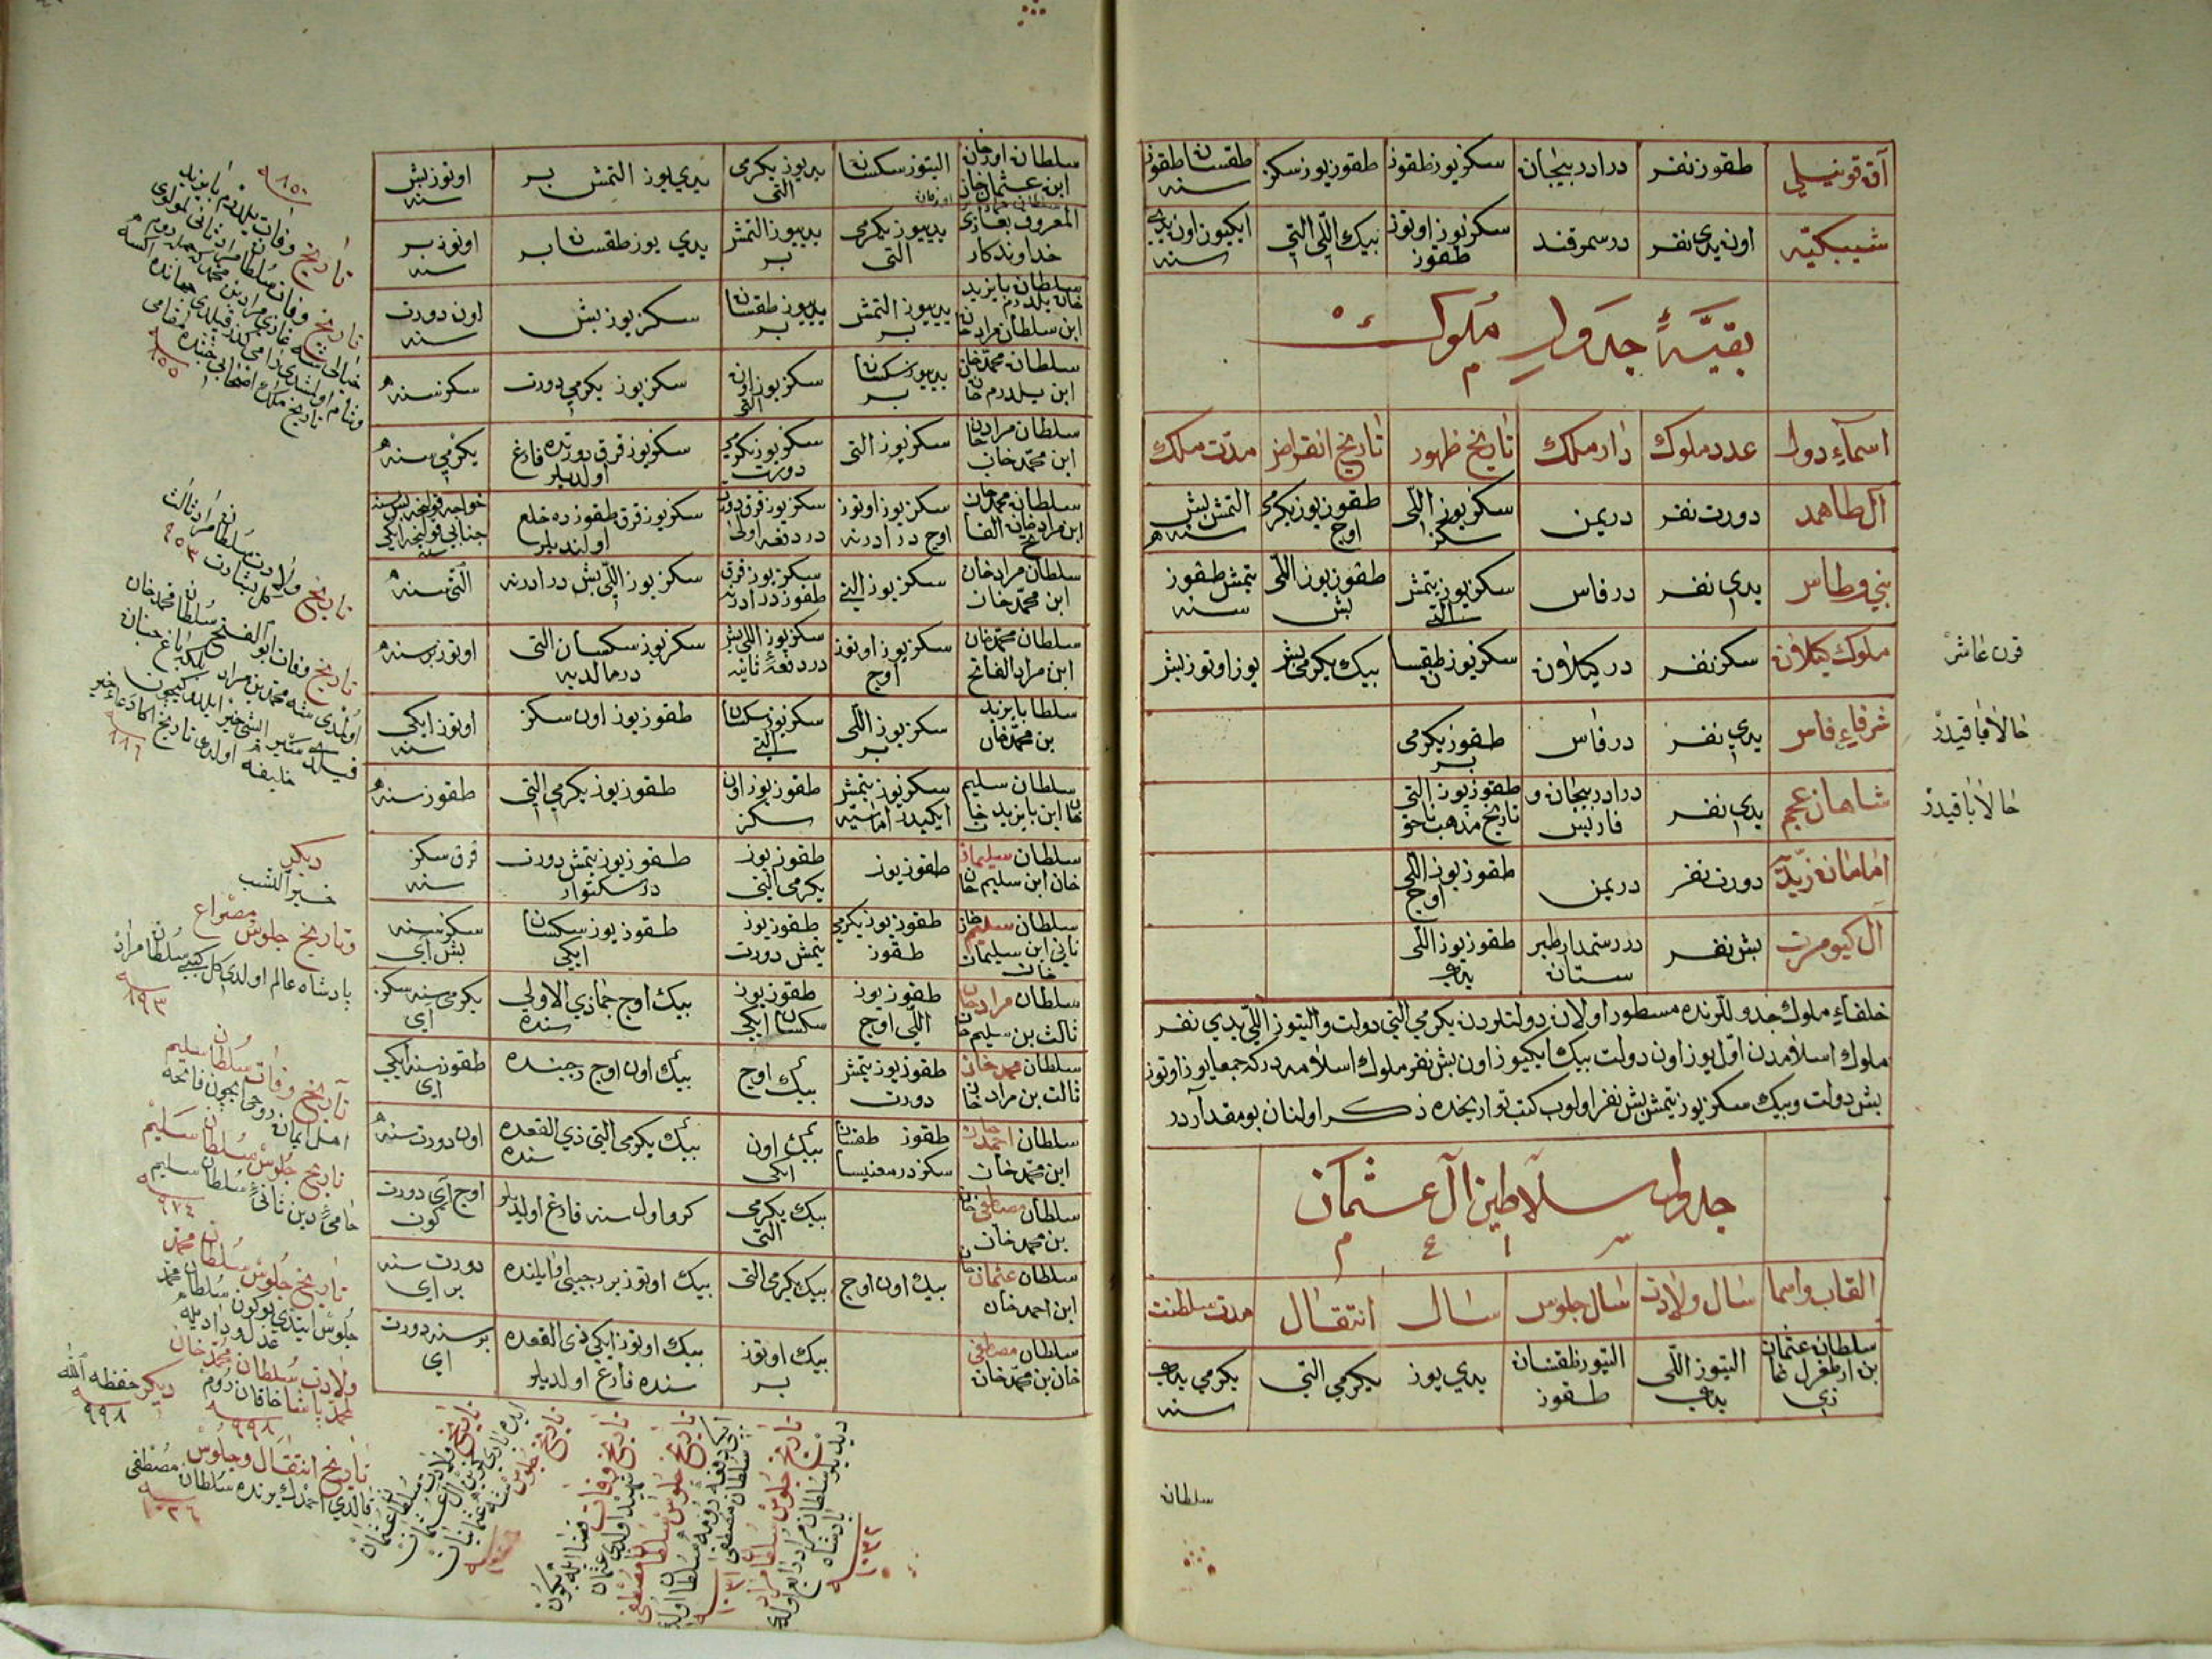 آق قوینیلی
طقوز نفر
در ادربیجان
سکز یوز طقوز
طقوز یوز سکز
طقسان طقوز سنه
شیبکیه
اون یدی نفر
در سمرقند
سکز یوز اوتوز طقوز
بیك اللی التی
ایکیوز اون یدی سنه
بقیهٔ جدول ملوك
اسمآء دول
عدد ملوك
دار ملك
تاریخ ظهور
تاریخ انقراض
مدت ملك
آل طاهمد
دورت نفر
در یمن
سکز یوز اللی سکز
طقوز یوز یکرمی اوچ
التمش بش سنه
بنی وطاس
یدی نفر
در فاس
سکز یوز یتمش التی
طقوز یوز اللی بش
یتمش طقوز سنه
ملوك کیلان
سکز نفر
در کیلان
سکز یوز طقسان
بیك یکرمی بش
یوز اوتوز بش
قرن عاشر
شرفاء فاس
یدی نفر
در فاس
طقوز یکرمی بر
حالا باقیدر
شاهان عجم
یدی نفر
در ادربیجان و فارس
طقوز یوز التی تاریخ مذهب ناحق
حالا باقیدر
امامان زیدیه
دورت نفر
در یمن
طقوز یوز اللی اوچ
آل کیومرت
بش نفر
در رستمدار طبرستان
طقوز یوز اللی یدی
خلفاء ملوك جدوللرنده مسطور اولان دولتلردن یکرمی التی دولت والتیوز اللی یدی نفر
ملوك اسلامدن اول یوز اون دولت بیك ایکیوز اون بش نفر ملوك اسلامیه درکه جمعا یوز اوتوز
بش دولت وبیك سکز یوز یتمش بش نفر اولوب کتب تواریخده ذکر اولنان بو مقدار در
جدول سلاطین آل عثمان
القاب واسما
سال ولادت
سال جلوس
سال انتقال
مدت سلطنت
سلطان عثمان بن ارطغرل غازی
التیوز اللی یدی
التیوز طقسان طقوز
یدی یوز یکرمی التی
یکرمی یدی سنه
سلطان
سلطان اورخان ابن عثمان خان
التیوز سکسان
یدیوز یکرمی التی
یدی یوز التمش بر
اوتوز بش سنه
المعروف بغازی خداوندکار
یدییوز یکرمی التی
یدییوز التمش بر
یدی یوز طقسان بر
اوتوز بر سنه
سلطان بایزید خان یلدرم ابن سلطان مراد خان
یدییوز التمش بر
یدییوز طقسان بر
سکز یوز بش
اون دورت سنه
سلطان محمد خان ابن یلدرم خان
یدییوز سکسان بر
سکز یوز اون التی
سکز یوز یکرمی دورت
سکز سنه
سلطان مراد خان ابن محمد خان
سکز یوز التی
سکز یوز یکرمی دورت
سکز یوز قرق دورتده فارغ اولدیلر
یکرمی سنه
سلطان محمد خان ابن مراد خان الفاتح
سکز یوز اوتوز اوچ در ادرنه
سکز یوز قرق دورت در دفعه اولی
سکز یوز قرق طقوزده خلع اولندیلر
سلطان مراد خان ابن محمد خان
سکز یوز التی
سکز یوز قرق طقوز در ادرنه
سکز یوز اللی بش در ادرنه
التی سنه
سلطان محمد خان ابن مراد الفاتح
سکز یوز اوتوز اوچ
سکز یوز اللی بش در دفعهٔ ثانیه
سکز یوز سکسان التی در مالدپه
اوتوز بر سنه
سلطان بایزید بن محمد خان
سکز یوز اللی بر
سکز یوز سکسان التی
طقوز یوز اون سکز
اوتوز ایکی سنه
سلطان سلیم خان ابن بایزید خان
سکز یوز یتمش ایکیدر اماسیه
طقوز یوز اون سکز
طقوز یوز یکرمی التی
طقوز سنه
سلطان سلیمان خان ابن سلیم خان
طقوز یوز
طقوز یوز یکرمی التی
طقوز یوز یتمش دورت در سکتوار
قرق سکز سنه
سلطان سلیم خان ثانی ابن سلیمان خان
طقوز یوز یکرمی طقوز
طقوز یوز یتمش دورت
طقوز یوز سکسان ایکی
سکز سنه بش آی
سلطان مراد خان ثالث بن سلیم خان
طقوز یوز اللی اوچ
طقوز یوز سکسان ایکی
بیك اوچ جماذی الاولی سنده
یکرمی سنه سکز آی
سلطان محمد خان ثالث بن مراد خان
طقوز یوز یتمش دورت
بیك اوچ
بیك اون اوچ رجبنده
طقوز سنه ایکی ای
سلطان احمد خان ابن محمد خان
طقوز طقسان سکز در مغنیسا
بیك اون ایکی
بیك یکرمی التی ذی القعده سنده
اون دورت سنه
سلطان مصطفی خان بن محمد خان
بیك یکرمی التی
کرو اول سنه فارغ اولدیلر
اوچ آی دورت کون
سلطان عثمان خان ابن احمد خان
بیك اون اوچ
بیك یکرمی التی
بیك اوتوز بر رجبی اوایلنده
دورت سنه بر ای
سلطان مصطفی خان بن محمد خان
بیك اوتوز بر
بیك اوتوز ایکی ذی القعده سنده فارغ اولدیلر
بر سنه دورت ای
تاریخ وفات یلدرم بایزید
٨٥٥
تاریخ ولادت سلطان مراد ثالث
کل بشارت ٩٥٣
تاریخ وفات ابو الفتح سلطان محمد خان
٨٨٦
دیکر
خیر الشب
وتاریخ جلوس مصراع
پادشاه عالم اولدی کل کبی سلطان مراد
تاریخ وفات سلطان سلیم
اهل ایمان روحی ایچون فاتحه
تاریخ جلوس سلطان سلیم
حامیٔ دین ثانی سلطان سلیم
٩٧٤
تاریخ جلوس سلطان محمد
جلوس ایتدی بوکون سلطان محمد
عدل و داد یله
ولادت سلطان محمد خان
محمد پاشا خاقان روم
٩٩٨
دیکر حفظه الله
٩٩٨
تاریخ انتقال وجلوس
قالدی احمدك یرنده سلطان مصطفی
١٠٢٦
تاریخ ولادت سلطان عثمان
تاریخ جلوس
تاریخ وفات
شهید اولدی عثمان
تاریخ جلوس سلطان مصطفی
١٠٣١
تاریخ جلوس سلطان مراد
١٠٣٢